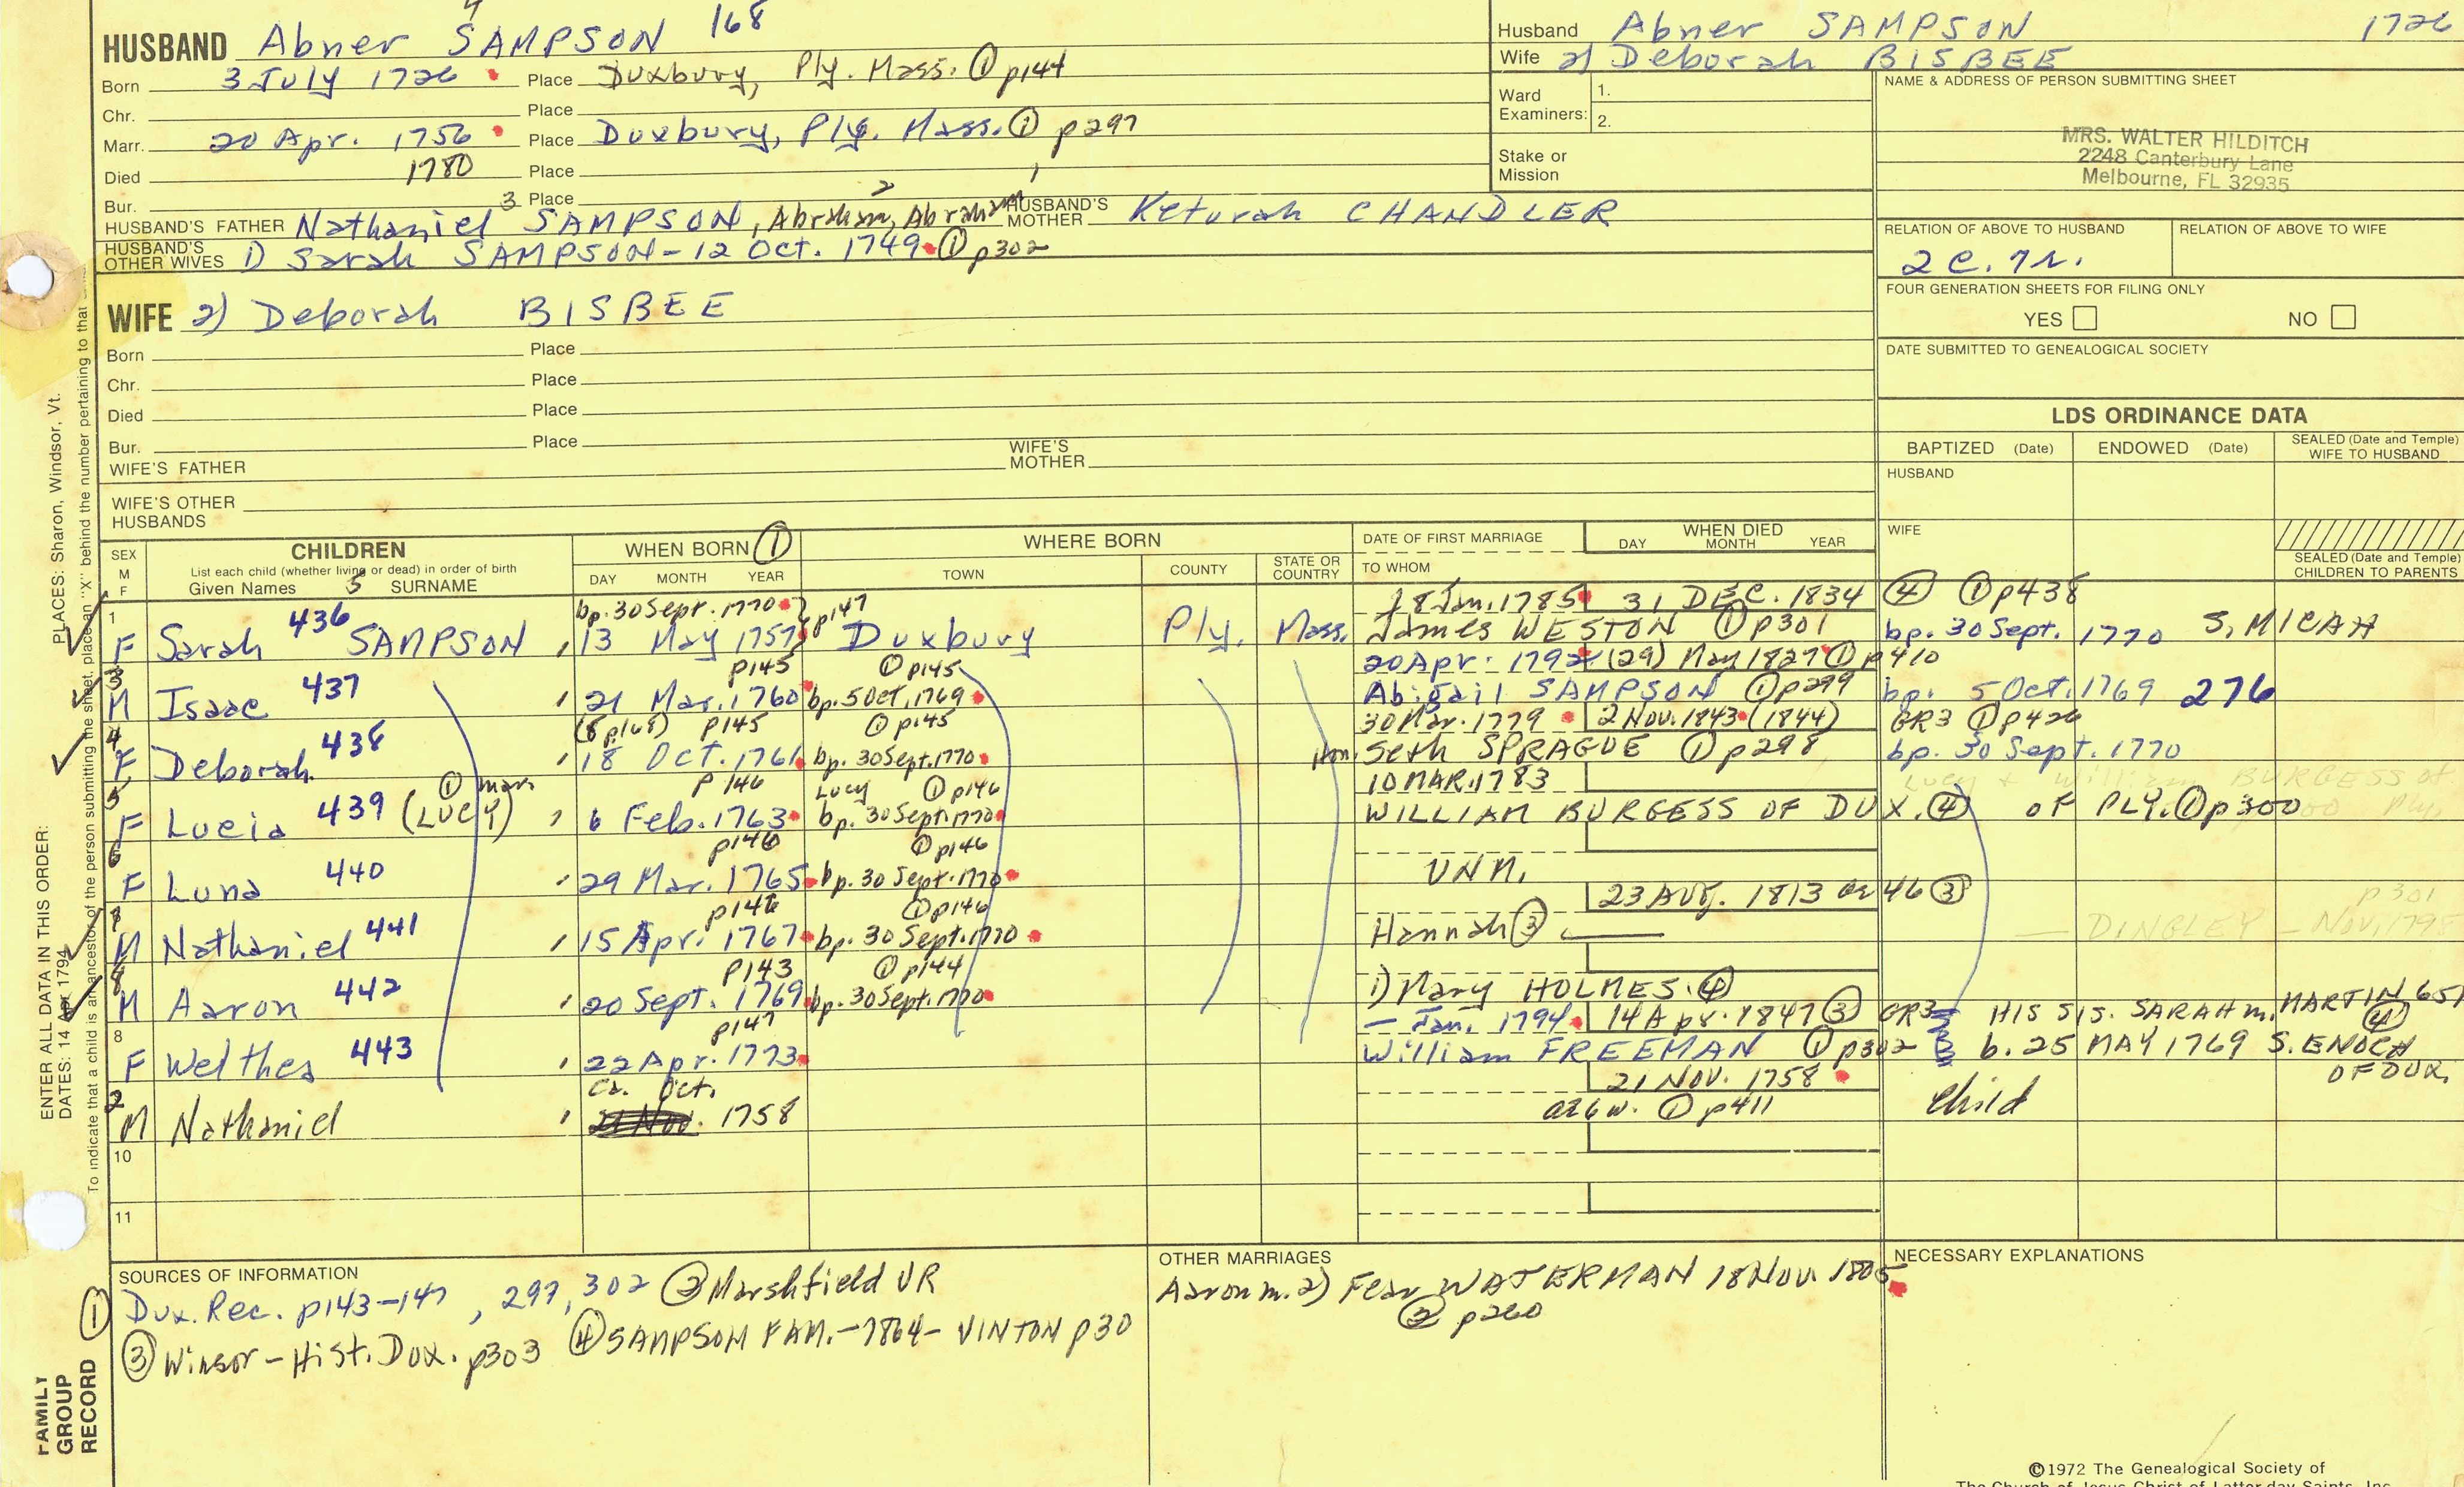 HUSBAND Abner SAMPSON 168
Born 3 July 1726 Place Duxbury, Ply. Mass. ① p144
Chr. Place
Marr. 20 Apr. 1756 Place Duxbury, Ply. Mass. ① p297
Died 1780 Place
Bur. Place
HUSBAND'S FATHER Nathaniel 3 SAMPSON, Abraham 2, Abraham 1 HUSBAND'S MOTHER Keturah CHANDLER
HUSBAND'S OTHER WIVES 1) Sarah SAMPSON - 12 Oct. 1749 ① p302
WIFE 2) Deborah BISBEE
Born Place
Chr. Place
Died Place
Bur. Place
WIFE'S FATHER WIFE'S MOTHER
WIFE'S OTHER HUSBANDS
Husband Abner SAMPSON 1726
Wife 2) Deborah BISBEE
Ward Examiners: 1.
2.
Stake or Mission
NAME & ADDRESS OF PERSON SUBMITTING SHEET
MRS. WALTER HILDITCH
2248 Canterbury Lane
Melbourne, FL 32935
RELATION OF ABOVE TO HUSBAND RELATION OF ABOVE TO WIFE
2 c. 7r.
FOUR GENERATION SHEETS FOR FILING ONLY
YES NO
DATE SUBMITTED TO GENEALOGICAL SOCIETY
LDS ORDINANCE DATA
BAPTIZED (Date) ENDOWED (Date) SEALED (Date and Temple) WIFE TO HUSBAND
HUSBAND
WIFE
SEALED (Date and Temple) CHILDREN TO PARENTS
SEX M F
CHILDREN
List each child (whether living or dead) in order of birth
Given Names 5 SURNAME
WHEN BORN ①
DAY MONTH YEAR
WHERE BORN
TOWN COUNTY STATE OR COUNTRY
DATE OF FIRST MARRIAGE
TO WHOM
WHEN DIED
DAY MONTH YEAR
bp. 30 Sept. 1770 p147 18 Jan. 1785 31 DEC. 1834 ④ ① p438
1 F Sarah 436 SAMPSON 13 May 1757 Duxbury Ply. Mass. James WESTON ① p301 bp. 30 Sept. 1770 S. MICAH
p145 ① p145 20 Apr. 1792 (29) May 1827 ① p410
3 M Isaac 437 21 Mar. 1760 bp. 5 Oct. 1769 Abigail SAMPSON ① p299 bp. 5 Oct. 1769 276
(8 p168) p145 ① p145 30 Mar. 1779 2 Nov. 1843 (1844) GR3 ① p426
4 F Deborah 438 18 Oct. 1761 bp. 30 Sept. 1770 Hon. Seth SPRAGUE ① p298 bp. 30 Sept. 1770
① marr p146 Lucy ① p146 10 MAR. 1783
5 F Lucia 439 (LUCY) 6 Feb. 1763 bp. 30 Sept. 1770 WILLIAM BURGESS OF DUX. ④ OF PLY. ① p300
p146 ① p146
6 F Luna 440 29 Mar. 1765 bp. 30 Sept. 1770 UNM.
p146 ① p146 23 AUG. 1813 or 46 ③
7 M Nathaniel 441 15 Apr. 1767 bp. 30 Sept. 1770 Hannah ③ DINGLEY - Nov. 1798 p301
p143 ① p144
8 M Aaron 442 20 Sept. 1769 bp. 30 Sept. 1770 1) Mary HOLMES ④
p147 — Jan. 1794 14 Apr. 1847 ③ GR3 HIS SIS. SARAH m. MARTIN 651 ④
8 F Welthea 443 22 Apr. 1773 William FREEMAN ① p302 b. 25 MAY 1769 S. ENOCH OF DUX.
ca. Oct. 21 NOV. 1758
2 M Nathaniel 21 Nov. 1758 ae 6 w. ① p411 child
10
11
SOURCES OF INFORMATION
① Dux. Rec. p143-147, 297, 302 ② Marshfield VR
③ Winsor - Hist. Dux. p303 ④ SAMPSON FAM. - 1864 - VINTON p30
OTHER MARRIAGES
Aaron m. 2) Fear WATERMAN 18 Nov. 1805
② p260
NECESSARY EXPLANATIONS
©1972 The Genealogical Society of
The Church of Jesus Christ of Latter-day Saints, Inc.
ENTER ALL DATA IN THIS ORDER:
PLACES: Sharon, Windsor, Vt.
DATES: 14 Apr 1794
To indicate that a child is an ancestor of the person submitting the sheet, place an "X" behind the number pertaining to that
FAMILY GROUP RECORD